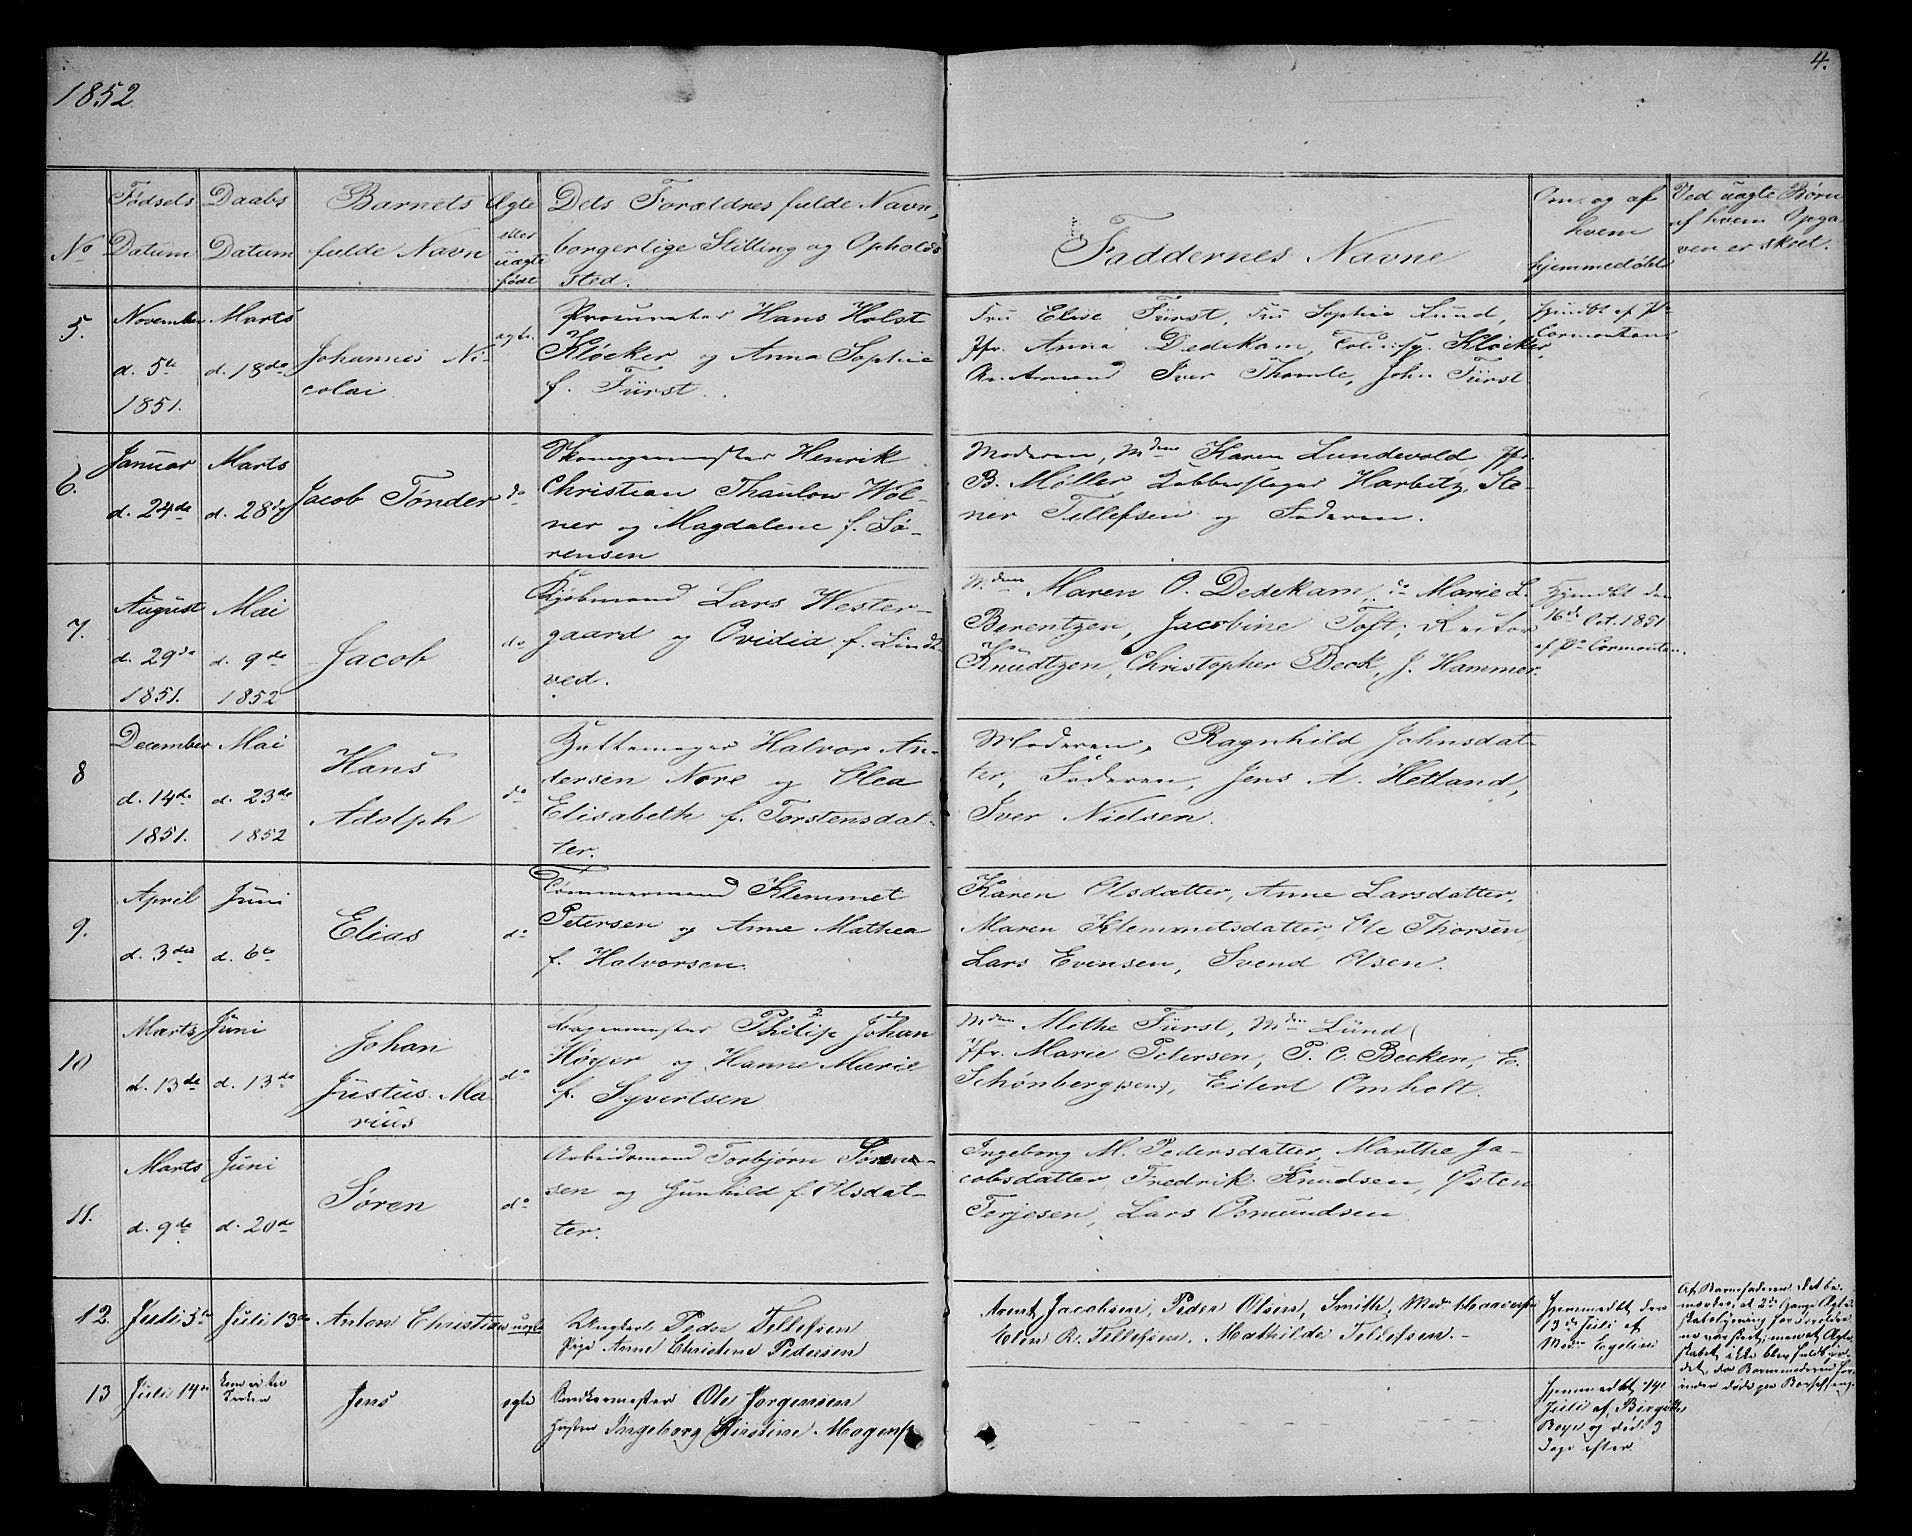 1852.
4.
No
Fødsels
Datum
Daabs
Datum
Barnets
fulde Navn
Ægte
eller
uægte
født
Dets Forældres fulde Navn,
borgerlige Stilling og Opholds
sted.
Faddernes Navne
Om og af
hvem
hjemmedøbt
Ved uægte Børn
af hvem Opga
ven er skeet.
5.
November
d. 5te
1851.
Marts
d. 18de
Johannes Ni-
colai
ægte.
Procurator Hans Holst
Kløcker og Anna Sophie
f. Fürst.
Fru Elise Fürst, Fru Sophie Lund,
Jfr. Anna Dedekam, Kløcker,
Iver Thomle, John Fürst
Hjmdbt af P
Cormontan
6.
Januar
d. 24de
Marts
d. 28de
Jacob Tønder
do
Skomagermester Henrik
Christian Thaulow Wøl-
ner og Magdalene f. Sø-
rensen
Moderen, Mdme Karen Lundevold, Jfr.
B. Møller, Kobberslager Harbitz, Ste-
ner Tellefsen og Faderen.
7.
August
d. 29de
1851.
Mai
d. 9de
1852
Jacob
do
Kjøbmand Lars Wester-
gaard og Ovidia f. Lindt-
ved.
Mdme Maren O. Dedekam, do Marie L.
Berentzen, Jacobine Toft, Rector
Knudtzen, Christopher Beck, J. Hammer.
Hjemdbt den
16de Oct. 1851
af P Cormontan.
8
December
d. 14de
1851.
Mai
d. 23de
1852
Hans
Adolph
do
Halvor An-
dersen Nore og Olea
Elisabeth f. Torstensdat-
ter.
Moderen, Ragnhild Johnsdat-
ter, Faderen, Jens A. Hetland,
Iver Nielsen.
9.
April
d. 3die
Juni
d. 6te
Elias
do
Tømmermand Klemmet
Petersen og Anne Mathea
f. Halvorsen.
Karen Olsdatter, Anne Larsdatter,
Maren Klemmetsdatter, Ole Thorsen,
Lars Evensen, Svend Olsen.
10
Marts
d. 13de
Juni
d. 13de
Johan
Justus Ma
rius
do
Bagermester Philip Johan
Høyer og Hanne Marie
f. Syvertsen
Mdme Mothe Fürst, Mdme Lund
Jfr. Marie Petersen, P. C. Becken, E.
Schønberg (sen), Eilert Omholt.
11.
Marts
d. 9de
Juni
d. 20de
Søren
do
Arbeidsmand Torbjørn Søren-
sen og Gunhild f. Olsdat-
ter.
Ingeborg M. Pedersdatter, Marthe Ja-
cobsdatter, Fredrik Knudsen, Østen
Terjesen, Lars Osmundsen.
12.
Juli 5te
Juli 13de
Anton Christian
uægte
Ungkarl Peder Tellefsen
Pige Anne Christine Pedersen
Jacobsen, Peder Olsen, Smith, Mad.
Elen R. Tellefsen, Mathilde Tellefsen.
Hjemmedbt den
13de Juli af
Mad.
Af Barnefaderen det be-
mærket, at 2de Gange Ægte-
skabslysning for Forældre-
ne var skeet, men at Ægte-
skabet ikke blev fuldbyr-
det, da Barnemoderen for-
inden døde paa Barselseng.
13
Juli 14de
Kom ei til
Kirken
Jens
ægte
Snedkermester Ole Jørgensen
Hustru Ingeborg Kirstine Mogens
Hjemmedbt 14de
Juli af Birgitte
Boye og døde 3
Dage efter.